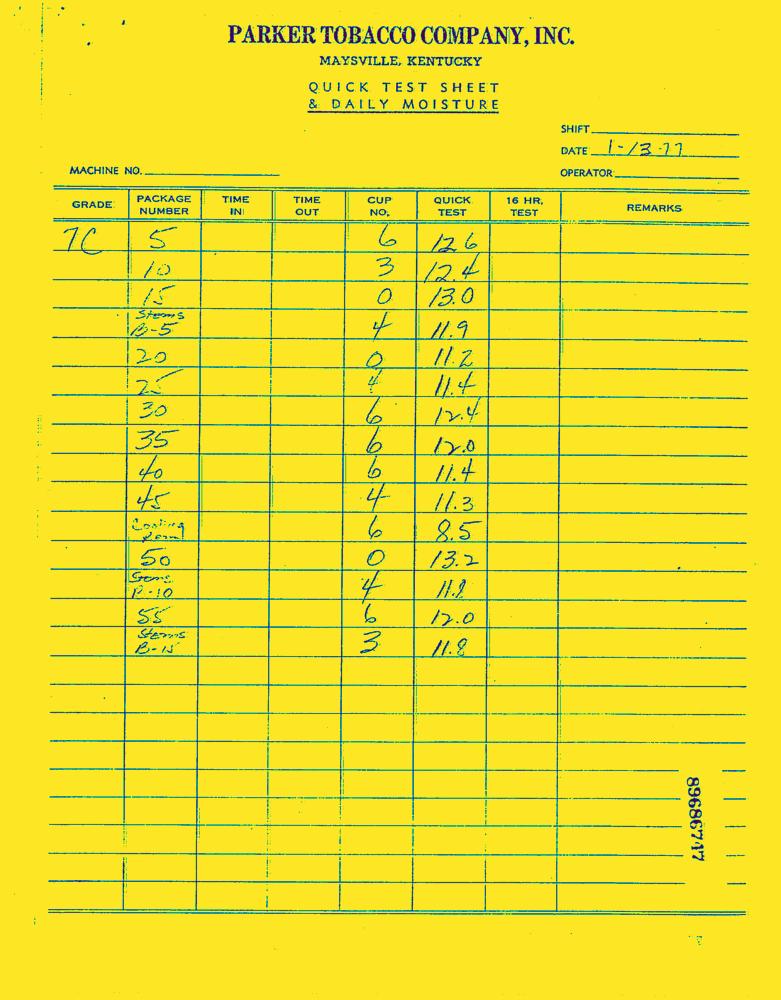 PARKER TOBACCO COMPANY, INC.
MAYSVILLE, KENTUCKY
QUICK TEST SHEET
& DAILY MOISTURE
SHIFT
DATE 1-13-77
MACHINE NO.
OPERATOR
GRADE PACKAGE NUMBER TIME IN TIME OUT CUP NO. QUICK TEST 16 HR. TEST REMARKS
7C 5 6 12.6
10 3 12.4
15 0 13.0
Stems B-5 4 11.9
20 0 11.2
25 4 11.4
30 6 12.4
35 6 12.0
40 6 11.4
45 4 11.3
Cooling Room 6 8.5
50 0 13.2
Stems B-10 4
55 6 12.0
Stems B-15 3 11.8
89686717